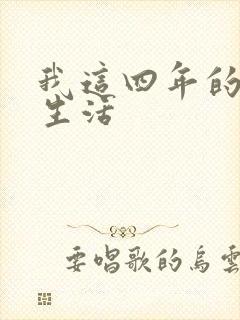 我這四年的
生活
要唱歌的烏雲